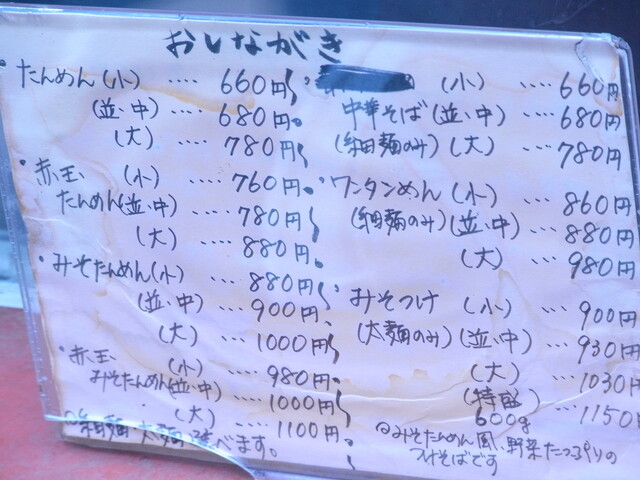 おしながき
・たんめん(小) …… 660円
(並、中) …… 680円
(大) …… 780円
・赤玉 (小) …… 760円
たんめん(並、中) …… 780円
(大) …… 880円
・みそたんめん(小) …… 880円
(並、中) …… 900円
(大) …… 1000円
・赤玉 (小) …… 980円
みそたんめん(並、中) …… 1000円
(大) …… 1100円
◎細麺、太麺 選べます。
(小) …… 660円
中華そば(並、中) …… 680円
(細麺のみ)(大) …… 780円
・ワンタンめん(小) …… 860円
(細麺のみ)(並、中) …… 880円
(大) …… 980円
みそつけ (小) …… 900円
(太麺のみ)(並、中) …… 930円
(大) …… 1030円
(特盛) …1150円
600g
◎みそたんめん風、野菜たっぷりの
つけそばです